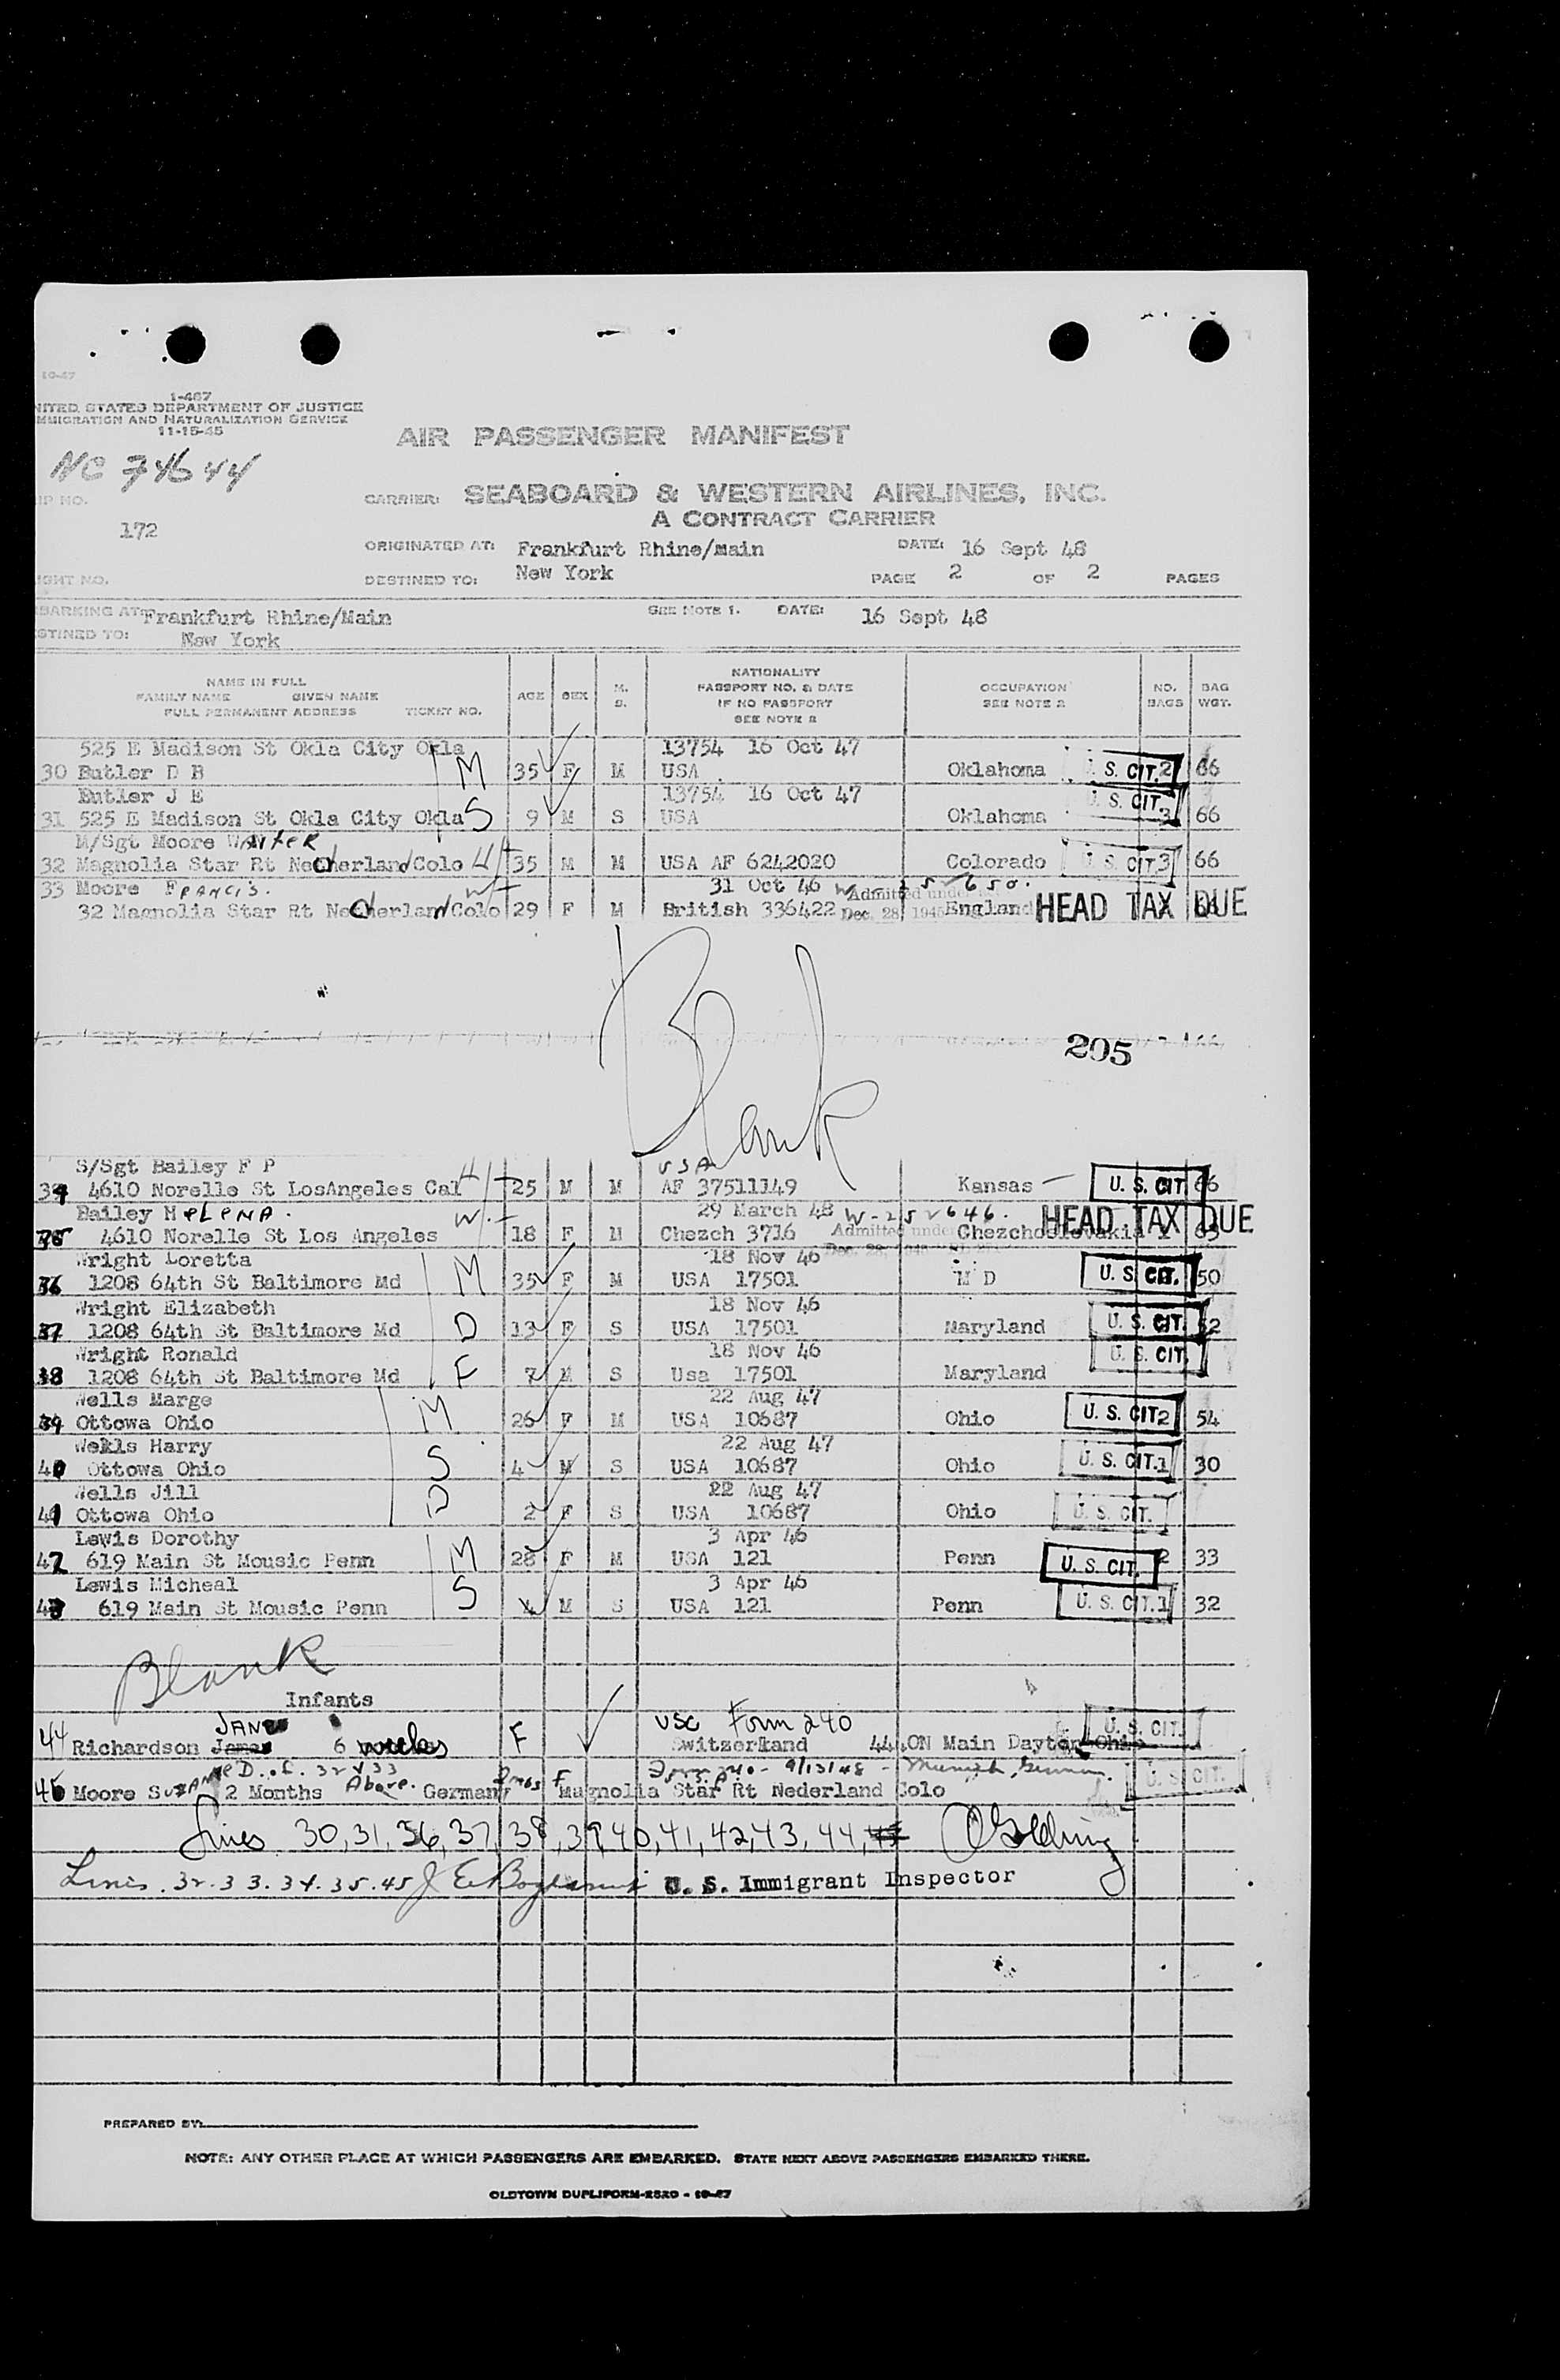 10-47
1-467
NITED STATES DEPARTMENT OF JUSTICE
MMIGRATION AND NATURALIZATION SERVICE
11-15-45
AIR PASSENGER MANIFEST
NC 74644
IP NO. CARRIER: SEABOARD & WESTERN AIRLINES, INC.
A CONTRACT CARRIER
172
ORIGINATED AT: Frankfurt Rhine/main DATE: 16 Sept 48
IGHT NO. DESTINED TO: New York PAGE 2 OF 2 PAGES
BARKING AT: Frankfurt Rhine/Main SEE NOTE 1. DATE: 16 Sept 48
STINED TO: New York
NAME IN FULL
FAMILY NAME GIVEN NAME
FULL PERMANENT ADDRESS TICKET NO.
AGE SEX M. S.
NATIONALITY
PASSPORT NO. & DATE
IF NO PASSPORT
SEE NOTE 2
OCCUPATION
SEE NOTE 2
NO. BAGS
BAG WGT.
525 E Madison St Okla City Okla 13754 16 Oct 47
30 Butler D B M 35 F M USA Oklahoma U. S. CIT. 2 66
Butler J E 13754 16 Oct 47
31 525 E Madison St Okla City Okla S 9 M S USA Oklahoma U. S. CIT. 3 66
M/Sgt Moore WAlteR
32 Magnolia Star Rt Nederland Colo H+ 35 M M USA AF 6242020 Colorado U. S. CIT. 3 66
33 Moore FRANCIS. W+ 31 Oct 46 Admitted under
32 Magnolia Star Rt Nederland Colo 29 F M British 336422 Dec. 28, 1945 England HEAD TAX DUE
Blank
205
S/Sgt Bailey F P H+ USA
34 4610 Norelle St LosAngeles Cal 25 M M AF 37511149 Kansas — U. S. CIT. 66
Bailey HELENA. W.- 29 March 48 W-252646. HEAD TAX DUE
35 4610 Norelle St Los Angeles 18 F M Chezch 3716 Admitted under Chezchoslovakia 1 63
Wright Loretta 18 Nov 46
36 1208 64th St Baltimore Md M 35 F M USA 17501 M D U. S. CIT. 50
Wright Elizabeth 18 Nov 46
37 1208 64th St Baltimore Md D 13 F S USA 17501 Maryland U. S. CIT. 52
Wright Ronald 18 Nov 46
38 1208 64th St Baltimore Md 7 M S Usa 17501 Maryland U. S. CIT.
Wells Marge 22 Aug 47
39 Ottowa Ohio M 26 F M USA 10687 Ohio U. S. CIT. 2 54
Wells Harry 22 Aug 47
40 Ottowa Ohio S 4 M S USA 10687 Ohio U. S. CIT. 1 30
Wells Jill 22 Aug 47
41 Ottowa Ohio D 2 F S USA 10687 Ohio U. S. CIT.
Lewis Dorothy 3 Apr 46
42 619 Main St Mousic Penn M 28 F M USA 121 Penn U. S. CIT. 2 33
Lewis Micheal 3 Apr 46
43 619 Main St Mousic Penn S 4 M S USA 121 Penn U. S. CIT. 1 32
Blank
Infants
44 Richardson JANE 6 weeks F USC Form 240 Switzerland 444 ON Main Dayton Ohio U. S. CIT.
D. of. 32 & 33 Form 240 - 9/13/48 - Munich, German.
45 Moore SUZANNE 2 Months Above. Germany 2 mos F Magnolia Star Rt Nederland Colo U. S. CIT.
Lines 30, 31, 36, 37, 38, 39, 40, 41, 42, 43, 44,
Lines. 32. 33. 34. 35. 45 U. S. Immigrant Inspector
PREPARED BY:
NOTE: ANY OTHER PLACE AT WHICH PASSENGERS ARE EMBARKED. STATE NEXT ABOVE PASSENGERS EMBARKED THERE.
OLDTOWN DUPLIFORM-2820 - 10-47